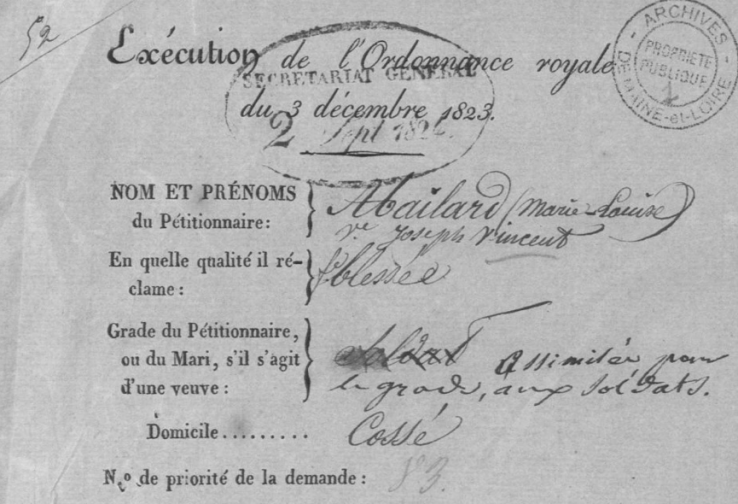 52
ARCHIVES
DE MAINE-et-LOIRE
PROPRIÉTÉ
PUBLIQUE
Exécution de l'Ordonnance royale
SECRÉTARIAT GÉNÉRAL
du 3 décembre 1823.
2 Sept 1824.
NOM ET PRÉNOMS
du Pétitionnaire:
Abailard (Marie-Louise)
Ve Joseph Vincent
En quelle qualité il ré-
clame :
blessée
Grade du Pétitionnaire,
ou du Mari, s'il s'agit
d'une veuve :
soldat assimilée pour
le grade, aux soldats.
Domicile......... Cossé
No de priorité de la demande : 83.